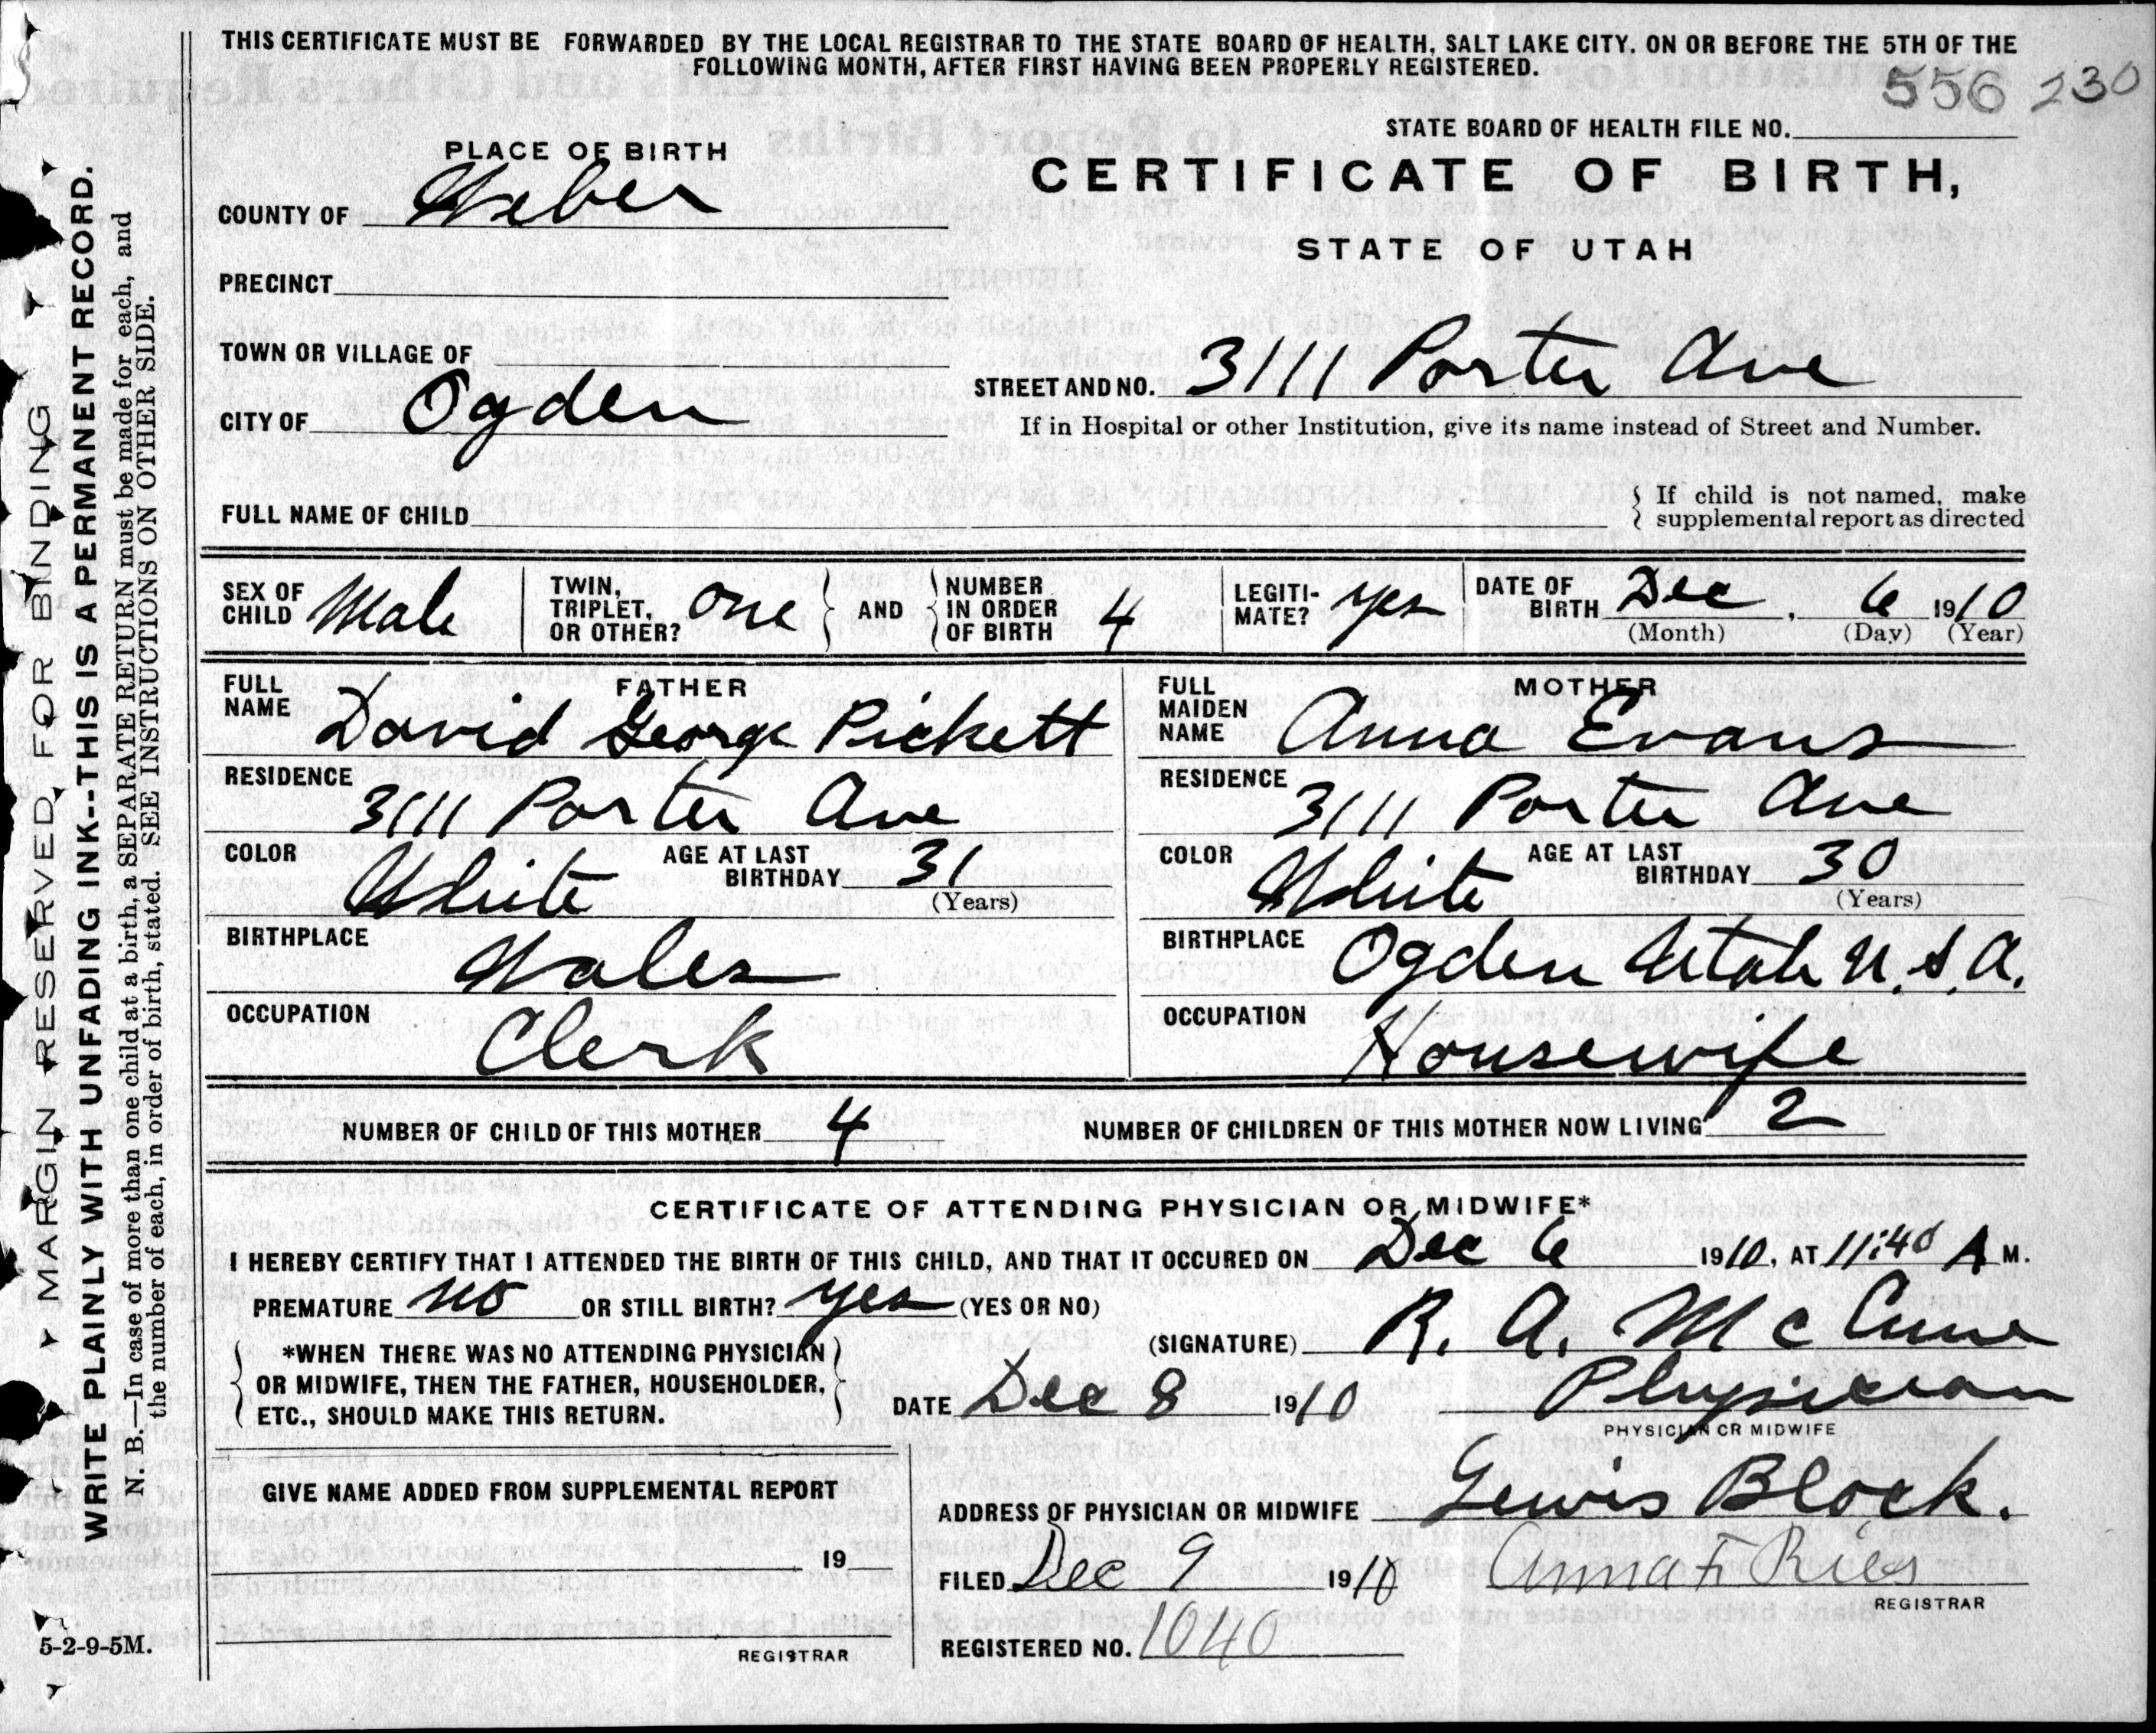 THIS CERTIFICATE MUST BE FORWARDED BY THE LOCAL REGISTRAR TO THE STATE BOARD OF HEALTH, SALT LAKE CITY. ON OR BEFORE THE 5TH OF THE
FOLLOWING MONTH, AFTER FIRST HAVING BEEN PROPERLY REGISTERED.
556 230
STATE BOARD OF HEALTH FILE NO.
PLACE OF BIRTH
CERTIFICATE OF BIRTH,
COUNTY OF Weber
STATE OF UTAH
PRECINCT
TOWN OR VILLAGE OF
STREET AND NO. 3111 Porter Ave
CITY OF Ogden
If in Hospital or other Institution, give its name instead of Street and Number.
FULL NAME OF CHILD
If child is not named, make
supplemental report as directed
SEX OF CHILD Male
TWIN, TRIPLET, OR OTHER? One
AND
NUMBER IN ORDER OF BIRTH 4
LEGITI-MATE? Yes
DATE OF BIRTH Dec, 6 1910
(Month) (Day) (Year)
FATHER
FULL NAME David George Pickett
RESIDENCE 3111 Porter Ave
COLOR White AGE AT LAST BIRTHDAY 31
(Years)
BIRTHPLACE Wales
OCCUPATION Clerk
MOTHER
FULL MAIDEN NAME Anna Evans
RESIDENCE 3111 Porter Ave
COLOR White AGE AT LAST BIRTHDAY 30
(Years)
BIRTHPLACE Ogden Utah U.S.A.
OCCUPATION Housewife
NUMBER OF CHILD OF THIS MOTHER 4 NUMBER OF CHILDREN OF THIS MOTHER NOW LIVING 2
CERTIFICATE OF ATTENDING PHYSICIAN OR MIDWIFE*
I HEREBY CERTIFY THAT I ATTENDED THE BIRTH OF THIS CHILD, AND THAT IT OCCURED ON Dec 6 1910, AT 11:40 A M.
PREMATURE no OR STILL BIRTH? yes (YES OR NO)
(SIGNATURE) R. A. McCune
*WHEN THERE WAS NO ATTENDING PHYSICIAN
OR MIDWIFE, THEN THE FATHER, HOUSEHOLDER,
ETC., SHOULD MAKE THIS RETURN.
DATE Dec 8 1910 Physician
PHYSICIAN OR MIDWIFE
GIVE NAME ADDED FROM SUPPLEMENTAL REPORT
19
REGISTRAR
ADDRESS OF PHYSICIAN OR MIDWIFE Lewis Block.
FILED Dec 9 1910 Anna F Ries
REGISTRAR
REGISTERED NO. 1040
MARGIN RESERVED FOR BINDING
WRITE PLAINLY WITH UNFADING INK--THIS IS A PERMANENT RECORD.
N. B.—In case of more than one child at a birth, a SEPARATE RETURN must be made for each, and
the number of each, in order of birth, stated. SEE INSTRUCTIONS ON OTHER SIDE.
5-2-9-5M.